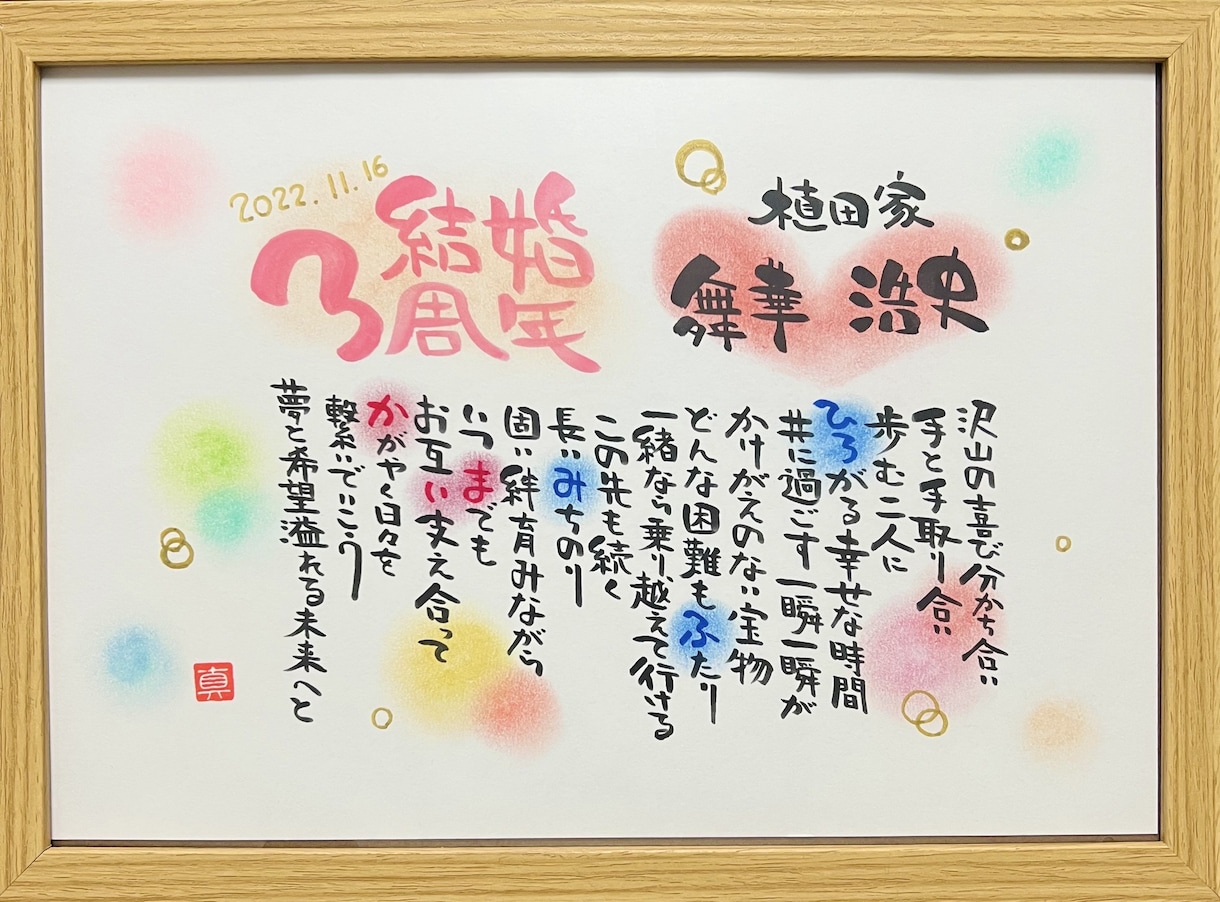 植田家
舞華 浩史
結婚
3周年
2022.11.16
沢山の喜び分かち合い
手と手取り合い
歩む二人に
ひろがる幸せな時間
共に過ごす一瞬一瞬が
かけがえのない宝物
どんな困難もふたり
一緒なら乗り越えて行ける
この先も続く
長いみちのり
固い絆育みながら
いつまでも
お互い支え合って
かがやく日々を
繋いでいこう
夢と希望溢れる未来へと
真